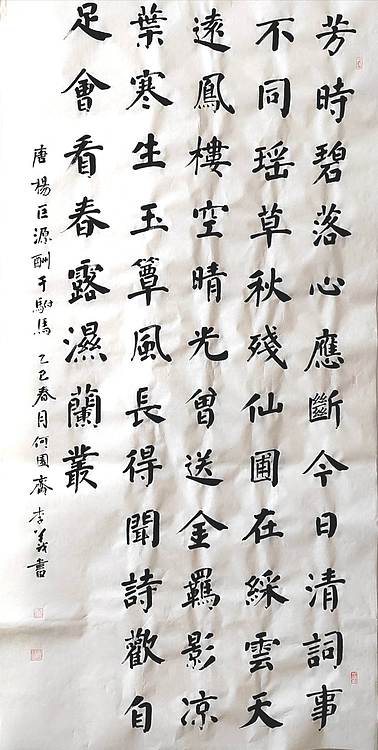 芳時碧落心應斷今日清詞事
不同瑶草秋殘仙圃在綵雲天
遠鳳樓空晴光曾送金羈影凉
葉寒生玉簟風長得聞詩歡自
足會看春露濕蘭叢
唐楊巨源酬于駙馬 乙巳春月何國齋李義書